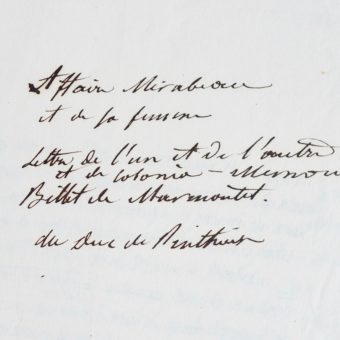 Affaire Mirabeau
et de sa femme
Lettre de l'un et de l'autre
et de Colonia - Memoi
Billet de Marmontel.
du Duc de Penthievre